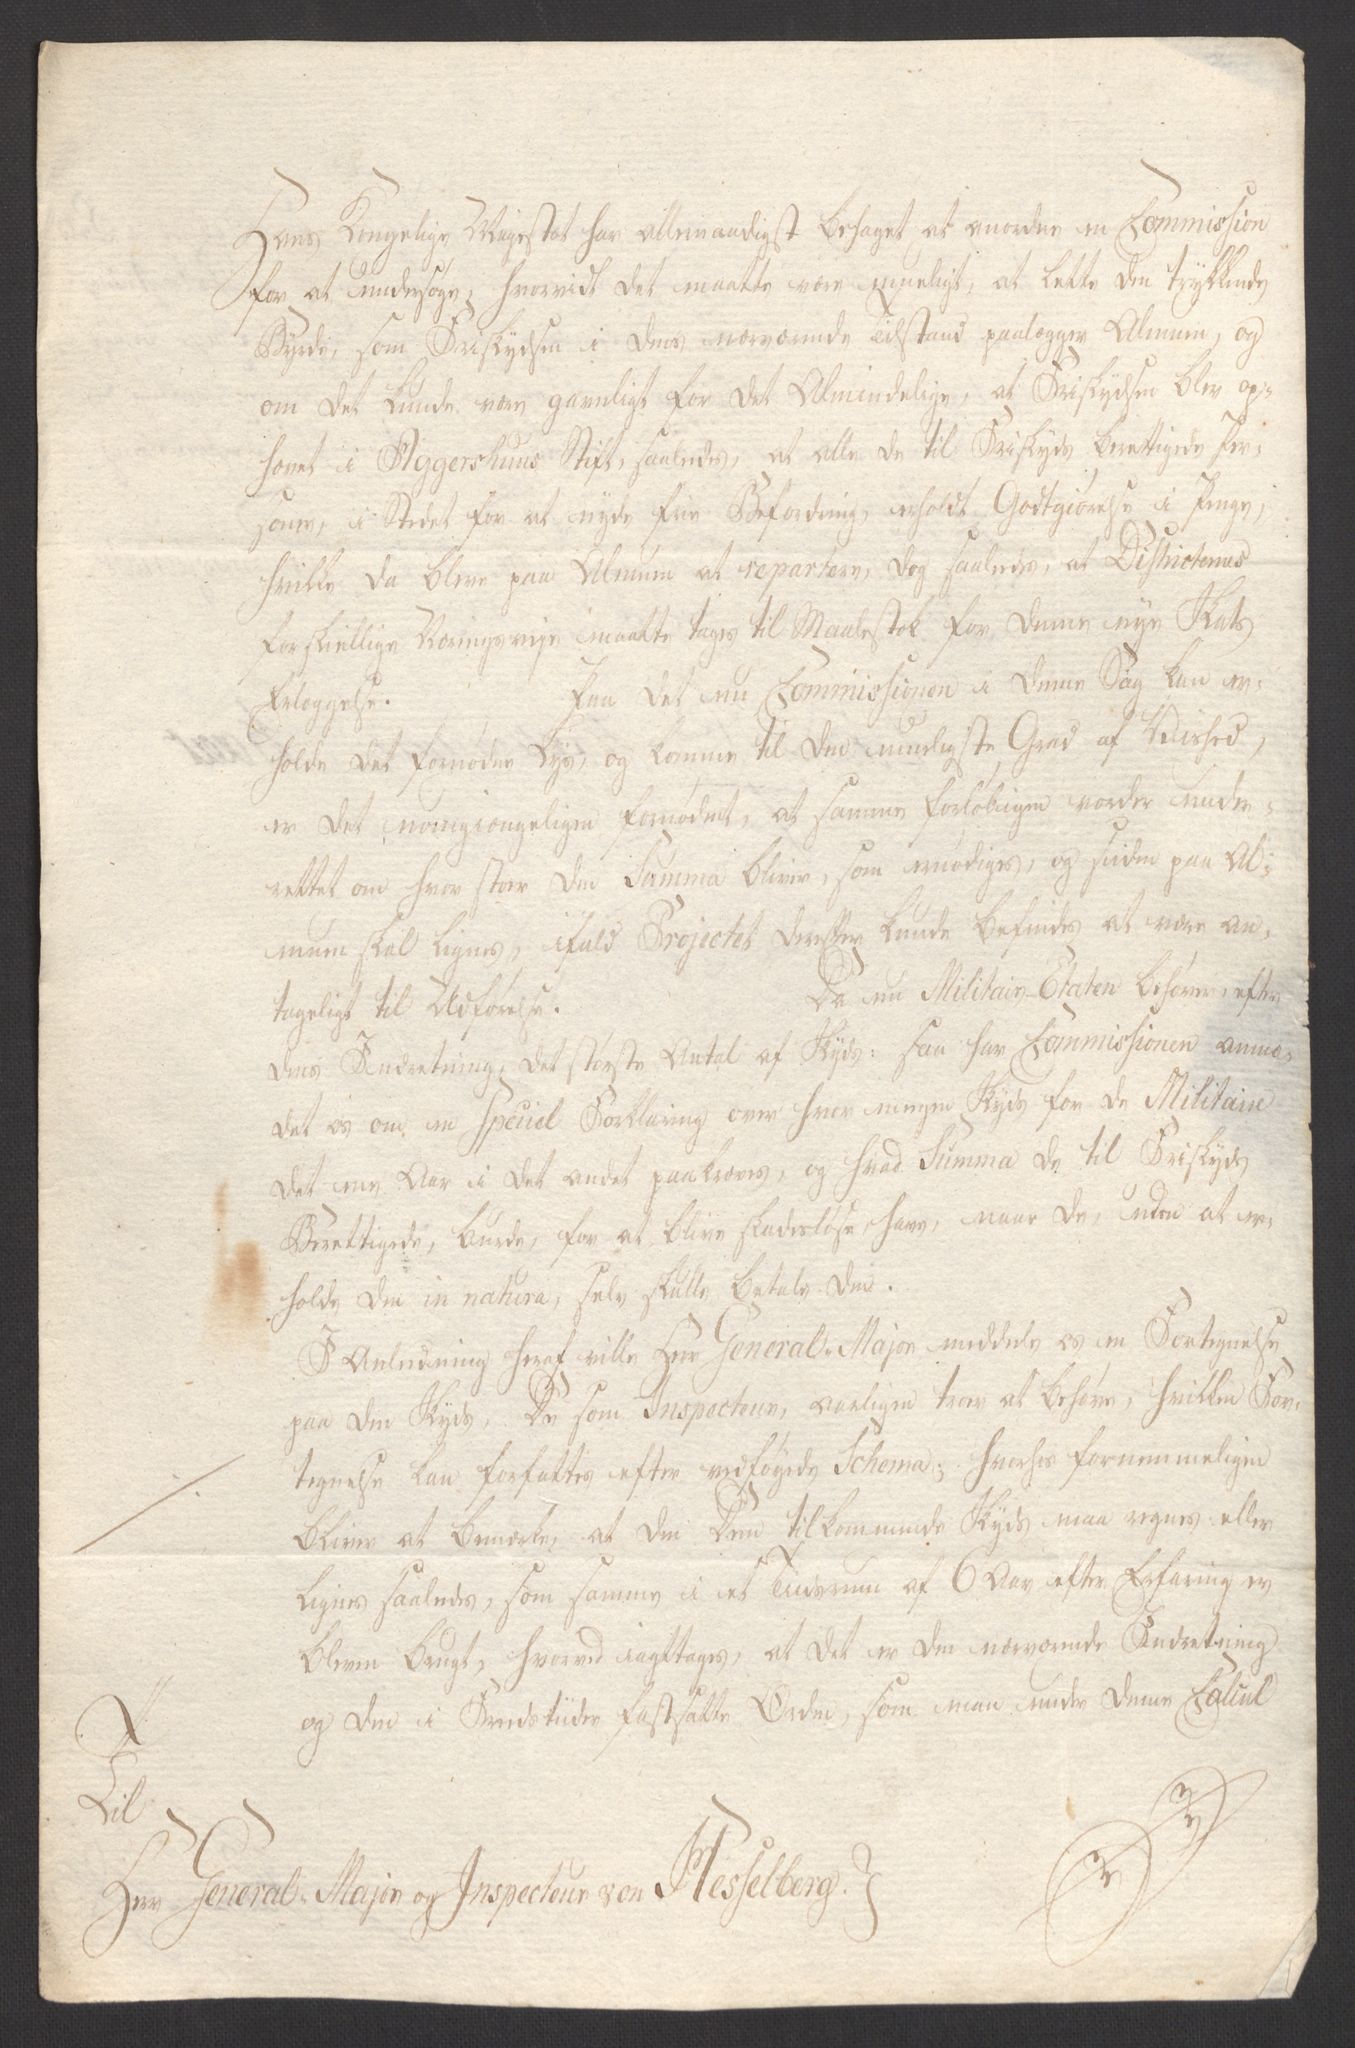 Hans Kongelige Majestæt har allernaadigst behaget at anordne en Commission
for at undersøge, hvorvidt det maatte være mueligt, at lette den trykkende
Byrde, som Friskydsen i dens nærværende Tilstand paalægger Almuen, og
om det kunde være gavnligt for det Almindelige, at Friskydsen blev op-
hævet i Aggershuus Stift, saaledes, at alle de til Friskyds berettigede Per-
soner, i Stedet for at nyde frie Befordring, erholdt Godtgiørelse i Penge,
hvilke da bleve paa Almuen at repartere, dog saaledes, at Districternes
forskiellige Næringsveje maatte tages til Maalestok for denne nye Skats
Erlæggelse. Paa det nu Commissionen i denne Sag kan er-
holde det fornødne Lys, og komme til den mueligste Grad af Vished,
er det uomgiængeligen fornødent, at samme forløbigen vorder under-
rettet om hvor stor den Summa bliver, som ernødiges, og siiden paa Al-
muen skal lignes, ifald Projectet derefter kunde befindes at være an-
tageligt til Udførelse. Da nu Militair-Etaten behøver efter
dens Indretning, det største Antal af Skyds: saa har Commissionen anmo-
det os om en Speciel Forklaring over hvor megen Skyds for de Militaire
det ene Aar i det andet paakræves, og hvad Summa de til Friskyds
Berettigede, burde, for at blive skadesløse, have, naar de, uden at er-
holde den in natura, selv skulle betale den.
I Anledning heraf ville Herr General-Major meddele os en Fortegnelse
paa den Skyds, De som Inspecteur, aarligen troer at behøve, hvilken For-
tegnelse kan forfattes efter vedføyede Schema; hvorhos fornemmeligen
bliver at bemærke, at den Dem tilkommende Skyds maa regnes eller
lignes saaledes, som samme i et Tiidsrum af 6 Aar efter Erfaring er
bleven brugt, hvorved iagttages, at det er den nærværende Indretning
og den i Fredstiider fastsatte Orden, som man under denne Calcul
Til
Herr General-Major og Inspecteur von Hesselberg.